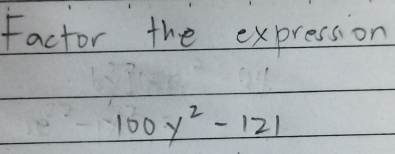 Factor the expression
100y² - 121